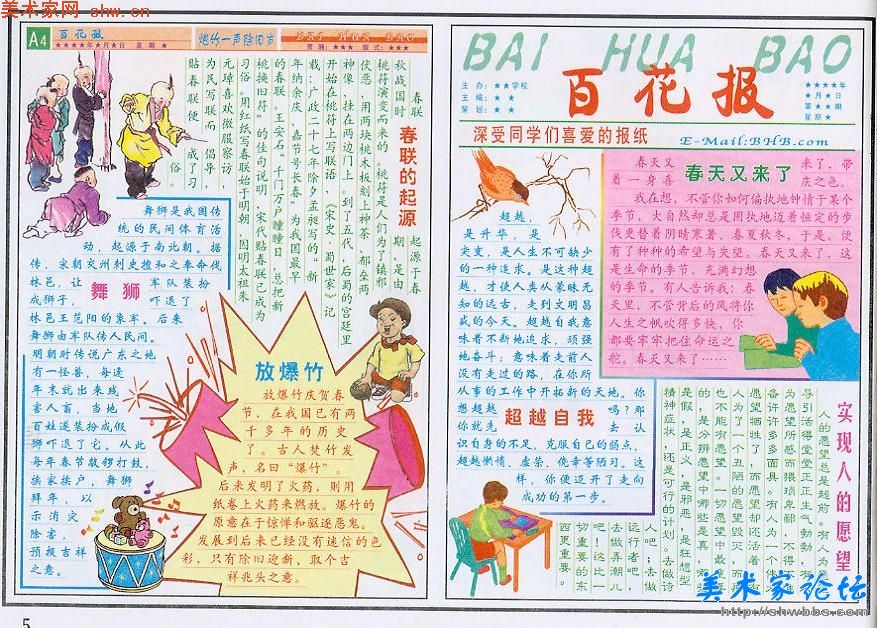 美术家网.cn
www.shwm.cn
A4
百花报
★★★★年★月★日 星期★
炮竹一声除旧岁
BAI HUA BAO
责编:★★★ 版式:★★★
春联的起源
春联起源于春
秋战国时期,是由
桃符演变而来的。桃符是人们为了镇邪
伏恶,用两块桃木板刻上神荼、郁垒两
神像,挂在两边门上。到了五代,后蜀的宫廷里
开始在桃符上写联语,《宋史·蜀世家》记
载:广政二十七年除夕孟昶写的“新
年纳余庆,嘉节号长春”为我国最早
的春联。王安石“千门万户瞳瞳日,总把新
桃换旧符”的佳句说明,宋代贴春联已成为
习俗。用红纸写春联始于明朝,因明太祖朱
元璋喜欢微服察访
为民写联而倡导,
贴春联便成了习
俗。
舞狮
舞狮是我国传
统的民间体育活
动,起源于南北朝。据
传,宋朝交州刺史檀和之奉命伐
林邑,让军队装扮
成狮子,吓退了
林邑王范阳的象军。后来
舞狮由军队传入民间。
明朝时传说广东之地
有一怪兽,每逢
年末就出来残
害人畜,当地
百姓遂装扮成假
狮吓退了它。从此
每年春节敲锣打鼓,
挨家挨户,舞狮
拜年,以
示消灾
除害,
预报吉祥
之意。
放爆竹
放爆竹庆贺春
节,在我国已有两
千多年的历史
了。古人焚竹发
声,名曰“爆竹”。
后来发明了火药,则用
纸卷上火药来燃放。爆竹的
原意在于惊惮和驱逐恶鬼。
发展到后来已经没有迷信的色
彩,只有除旧迎新、取个吉
祥兆头之意。
5
BAI HUA BAO
百花报
主办:★★学校
主编:★★
策划:★★
★★★★年
★月★日
第★★期
星期★
深受同学们喜爱的报纸
E-Mail:BHB.com
春天又来了
春天又来了,带
着一身喜庆之色。
我在想,不管你如何偏执地钟情于某个
季节,大自然却总是固执地迈着恒定的步
伐更替着阴晴寒暑、春夏秋冬,于是,便
有了种种的希望与失望。春天又来了,这
是生命的季节,充满幻想
的季节。有人告诉我:春
天里,不管背后的风将你
人生之帆吹得多快,你
都要牢牢把住命运之
舵。春天又来了……
超越自我
超越,
是升华,是
突变,是人生不可缺少
的一种追求。是这种超
越,才使人类从蒙昧无
知的远古,走到文明昌
盛的今天。超越自我意
味着不断地追求,顽强
地奋斗;意味着走前人
没有走过的路,在你所
从事的工作中开拓新的天地。你
想超越吗?那
你就先去认
识自身的不足,克服自己的弱点,
超越懒惰、虚荣、侥幸等陋习。这
样,你便迈开了走向
成功的第一步。
实现人的愿望
人的愿望总是超前,有人为
导引活得堂堂正正生气勃勃,有
为愿望所惑而猥琐卑鄙,不得
备许许多多面具。有人为一个伟
愿望牺牲了,而愿望却还活着
人为了一个丑陋的愿望毁灭,而
也不能有愿望。一切愿望中最重
的,是分辨愿望中哪些是真,哪
是假,是正义,是邪恶,是狂想型
精神症状,还是可行的计划。去做诗
人吧!去做
远行者吧,
去做弄潮儿
吧!这比一
切重要的东
西更重要。
美术家论坛
http://shwbbs.com/